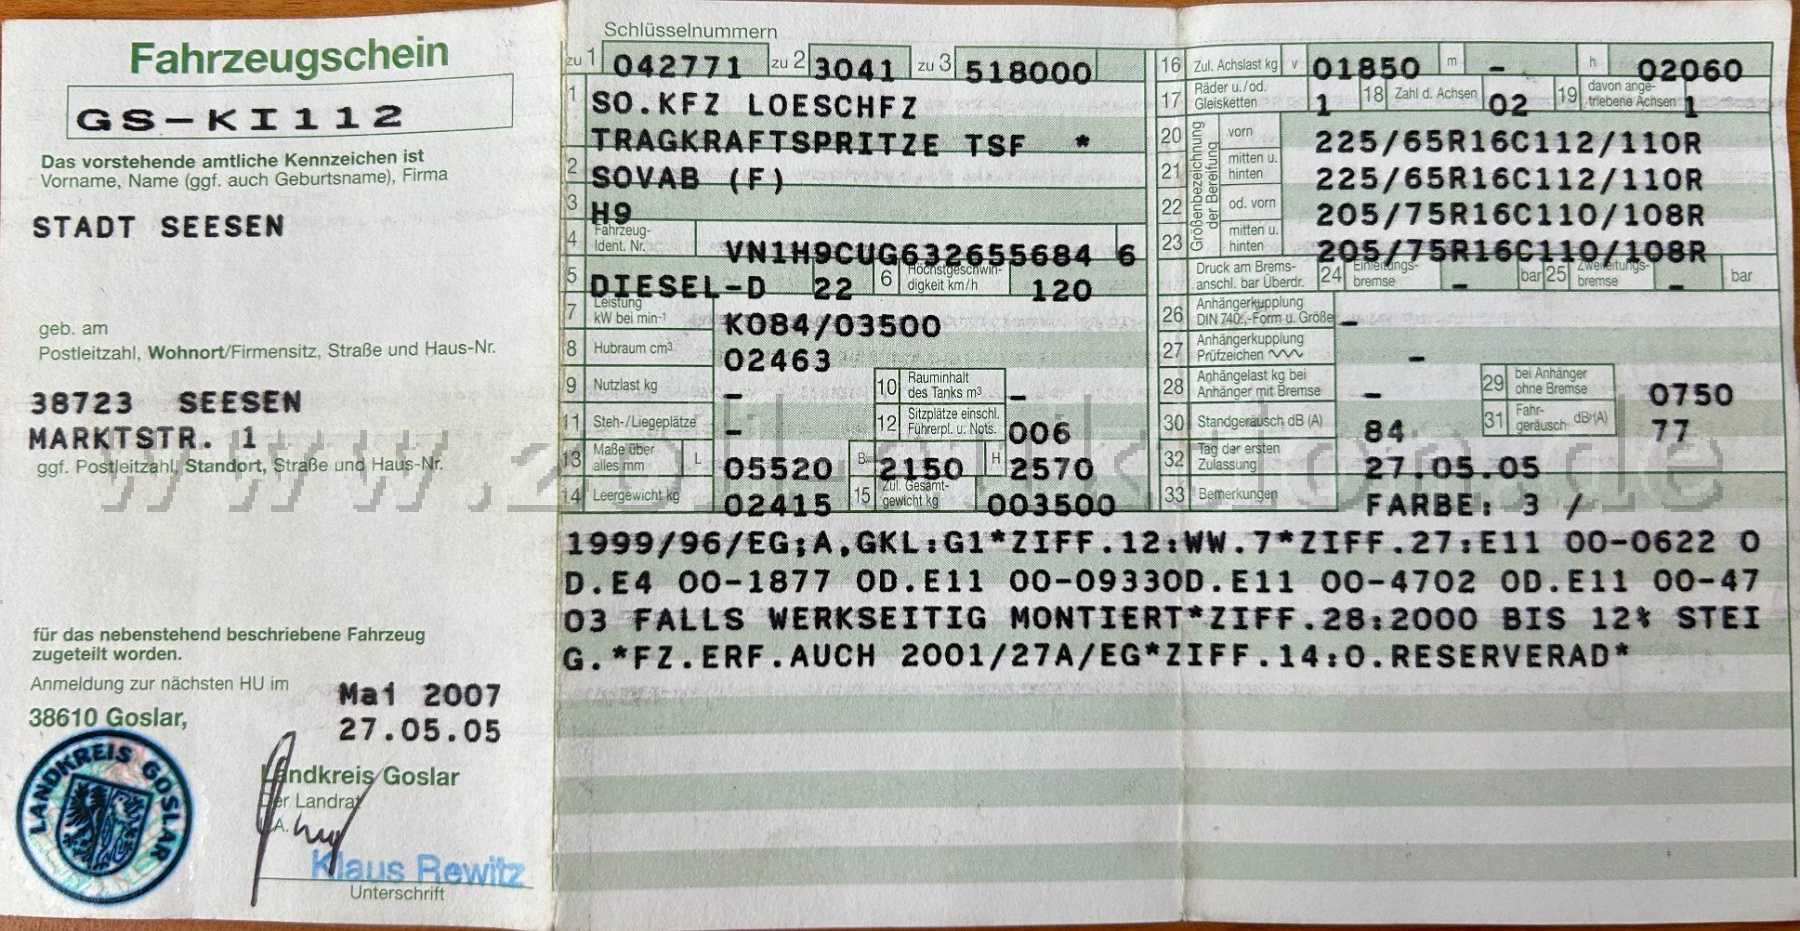 Fahrzeugschein
GS-KI112
Das vorstehende amtliche Kennzeichen ist
Vorname, Name (ggf. auch Geburtsname), Firma
STADT SEESEN
geb. am
Postleitzahl, Wohnort/Firmensitz, Straße und Haus-Nr.
38723 SEESEN
MARKTSTR. 1
ggf. Postleitzahl, Standort, Straße und Haus-Nr.
für das nebenstehend beschriebene Fahrzeug
zugeteilt worden.
Anmeldung zur nächsten HU im
Mai 2007
38610 Goslar,
27.05.05
LANDKREIS GOSLAR
Landkreis Goslar
Der Landrat
I.A.
Klaus Rewitz
Unterschrift
Schlüsselnummern
zu 1 042771 zu 2 3041 zu 3 518000
1 SO.KFZ LOESCHFZ
TRAGKRAFTSPRITZE TSF *
2 SOVAB (F)
3 H9
4 Fahrzeug-Ident. Nr. VN1H9CUG632655684 6
5 DIESEL-D 22 6 Höchstgeschwindigkeit km/h 120
7 Leistung kW bei min-1 K084/03500
8 Hubraum cm³ 02463
9 Nutzlast kg - 10 Rauminhalt des Tanks m³ -
11 Steh-/Liegeplätze - 12 Sitzplätze einschl. Führerpl. u. Nots. 006
13 Maße über alles mm L 05520 B 2150 H 2570
14 Leergewicht kg 02415 15 Zul. Gesamtgewicht kg 003500
16 Zul. Achslast kg v 01850 m - h 02060
17 Räder u./od. Gleisketten 1 18 Zahl d. Achsen 02 19 davon angetriebene Achsen 1
Größenbezeichnung der Bereifung
20 vorn 225/65R16C112/110R
21 mitten u. hinten 225/65R16C112/110R
22 od. vorn 205/75R16C110/108R
23 mitten u. hinten 205/75R16C110/108R
Druck am Bremsanschl. bar Überdr. 24 Einleitungsbremse - bar 25 Zweileitungsbremse - bar
26 Anhängerkupplung DIN 740.,-Form u. Größe -
27 Anhängerkupplung Prüfzeichen -
28 Anhängelast kg bei Anhänger mit Bremse - 29 bei Anhänger ohne Bremse 0750
30 Standgeräusch dB (A) 84 31 Fahrgeräusch dB (A) 77
32 Tag der ersten Zulassung 27.05.05
33 Bemerkungen FARBE: 3 /
1999/96/EG;A,GKL:G1*ZIFF.12:WW.7*ZIFF.27:E11 00-0622 O
D.E4 00-1877 OD.E11 00-0933OD.E11 00-4702 OD.E11 00-47
03 FALLS WERKSEITIG MONTIERT*ZIFF.28:2000 BIS 12% STEI
G.*FZ.ERF.AUCH 2001/27A/EG*ZIFF.14:O.RESERVERAD*
www.zoll-auktion.de